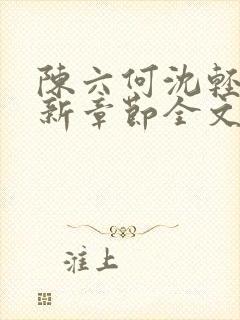 陳六何沈輕
新章節全文
淮上